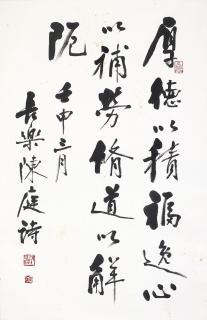 厚德以積福逸心
以補勞脩道以解
阨
壬申三月
長樂陳庭詩